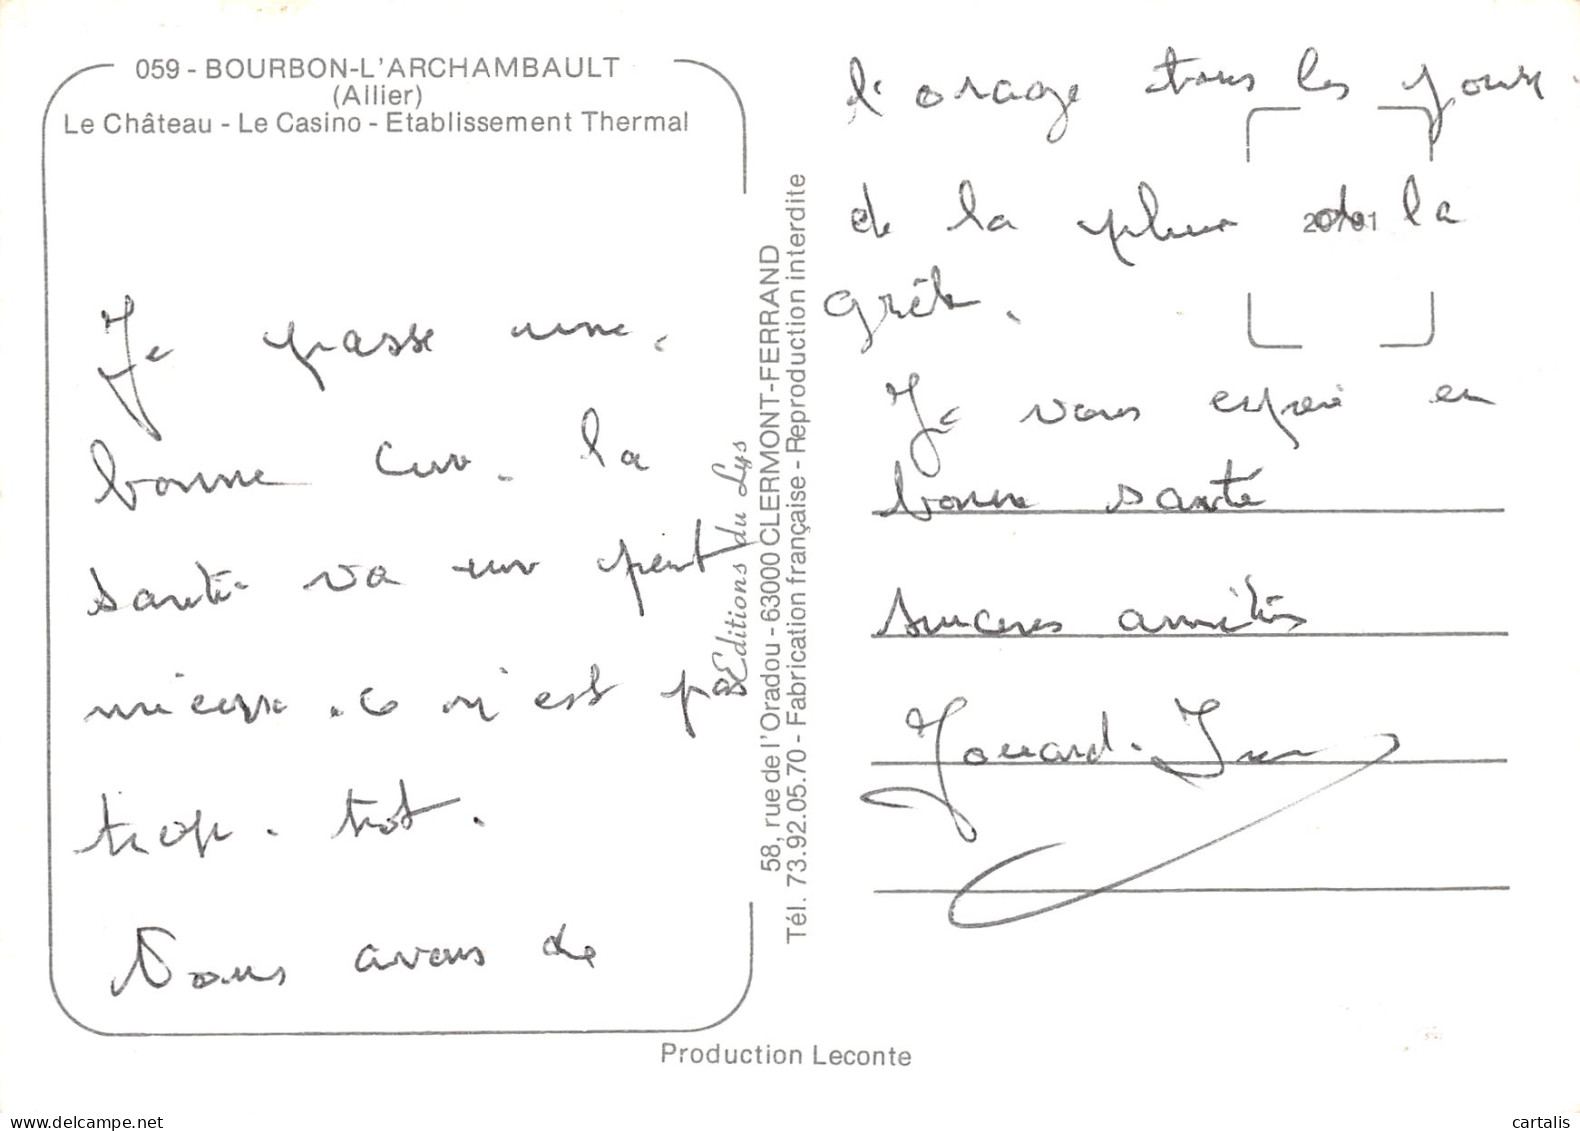 059 - BOURBON-L'ARCHAMBAULT
(Allier)
Le Château - Le Casino - Etablissement Thermal
Je passe une
bonne cure. la
santé va un peut
mieux. ce n'est pas
trop. tôt.
Nous avons de
Editions du Lys
58, rue de l'Oradou - 63000 CLERMONT-FERRAND
Tél. 73.92.05.70 - Fabrication française - Reproduction interdite
l'orage tous les jours.
de la pluie de la
20101
grêle.
Je vous espère en
bonne santé
sincères amitiés
Jouard.
Production Leconte
delcampe.net
cartalis